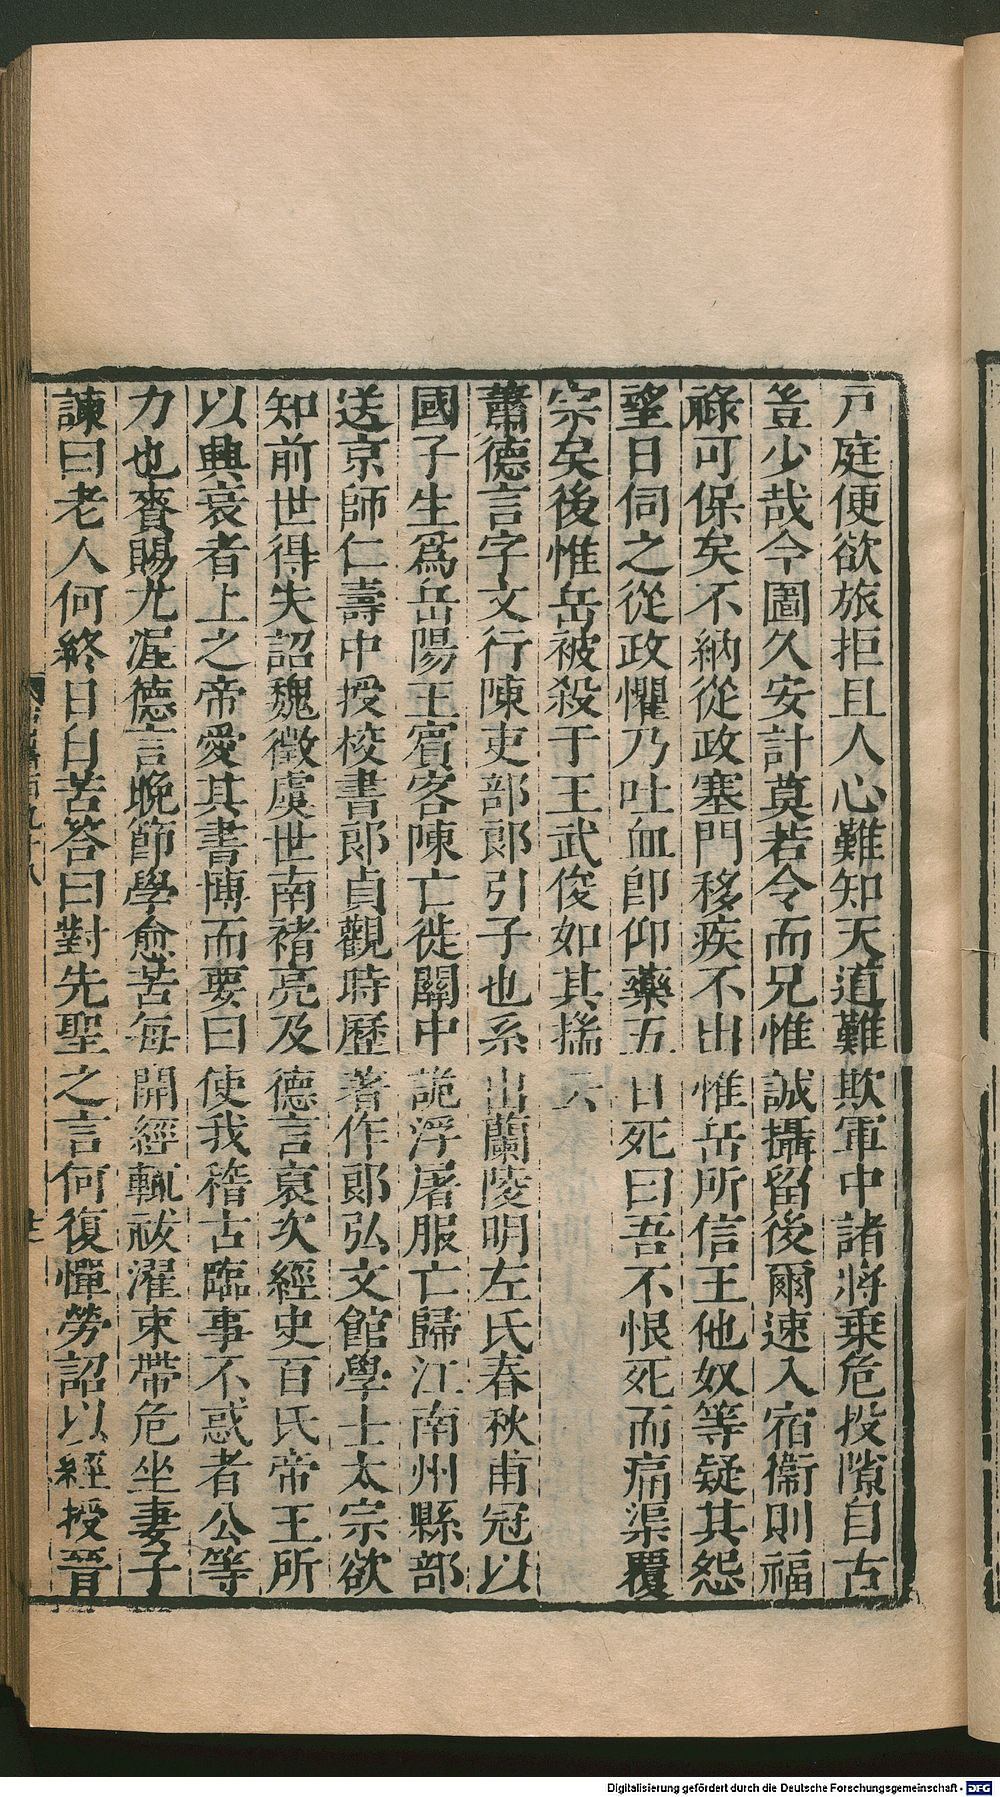 戸庭便欲旅拒且人心難知天道難欺軍中諸將乗危投隙自古
豈少哉今圖久安計莫若令而兄惟誠攝留後爾速入宿衞則福
祿可保矣不納從政塞門移疾不出惟岳所信王他奴等疑其怨
望日伺之從政懼乃吐血卽仰藥五日死曰吾不恨死而痛渠覆
宗矣後惟岳被殺于王武俊如其揣云
蕭德言字文行陳吏部郎引子也系出蘭陵明左氏春秋甫冠以
國子生爲岳陽王賓客陳亡徙關中詭浮屠服亡歸江南州縣部
送京師仁壽中授校書郎貞觀時歷著作郎弘文館學士太宗欲
知前世得失詔魏徵虞世南褚亮及德言裒次經史百氏帝王所
以興衰者上之帝愛其書博而要曰使我稽古臨事不惑者公等
力也賚賜尤渥德言晚節學愈苦每開經輒祓濯束帶危坐妻子
諫曰老人何終日自苦答曰對先聖之言何復憚勞詔以經授晉
Digitalisierung gefördert durch die Deutsche Forschungsgemeinschaft - DFG